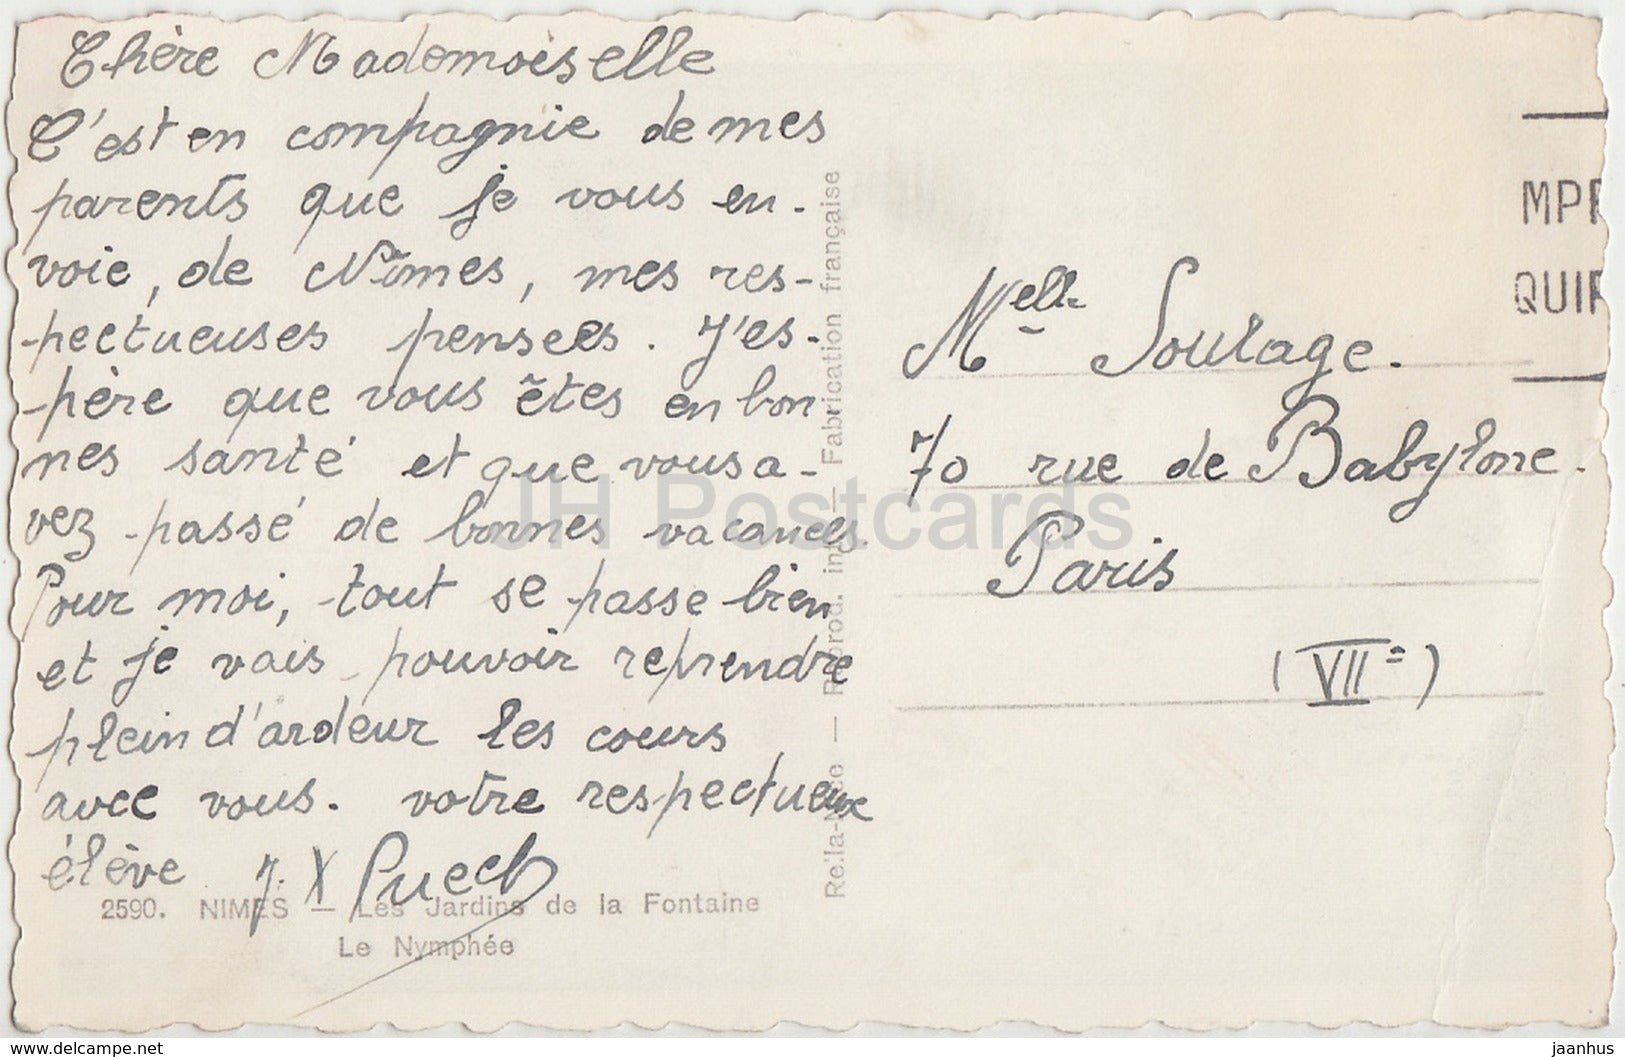 Chère Mademoiselle
C'est en compagnie de mes
parents que je vous en-
voie, de Nîmes, mes res-
-pectueuses pensees. J'es-
-père que vous êtes en bon
nes santé et que vous a-
vez passé de bonnes vacances.
Pour moi, tout se passe bien
et je vais pouvoir reprendre
plein d'ardeur les cours
avec vous. votre respectueux
élève J. X Puech
2590. NIMES — Les Jardins de la Fontaine
Le Nymphée
Rella-Nice — Reprod. int. — Fabrication française
Melle Soulage.
70 rue de Babylone.
Paris
(VIIe)
MPR
QUIR
JH Postcards
www.delcampe.net
jaanhus